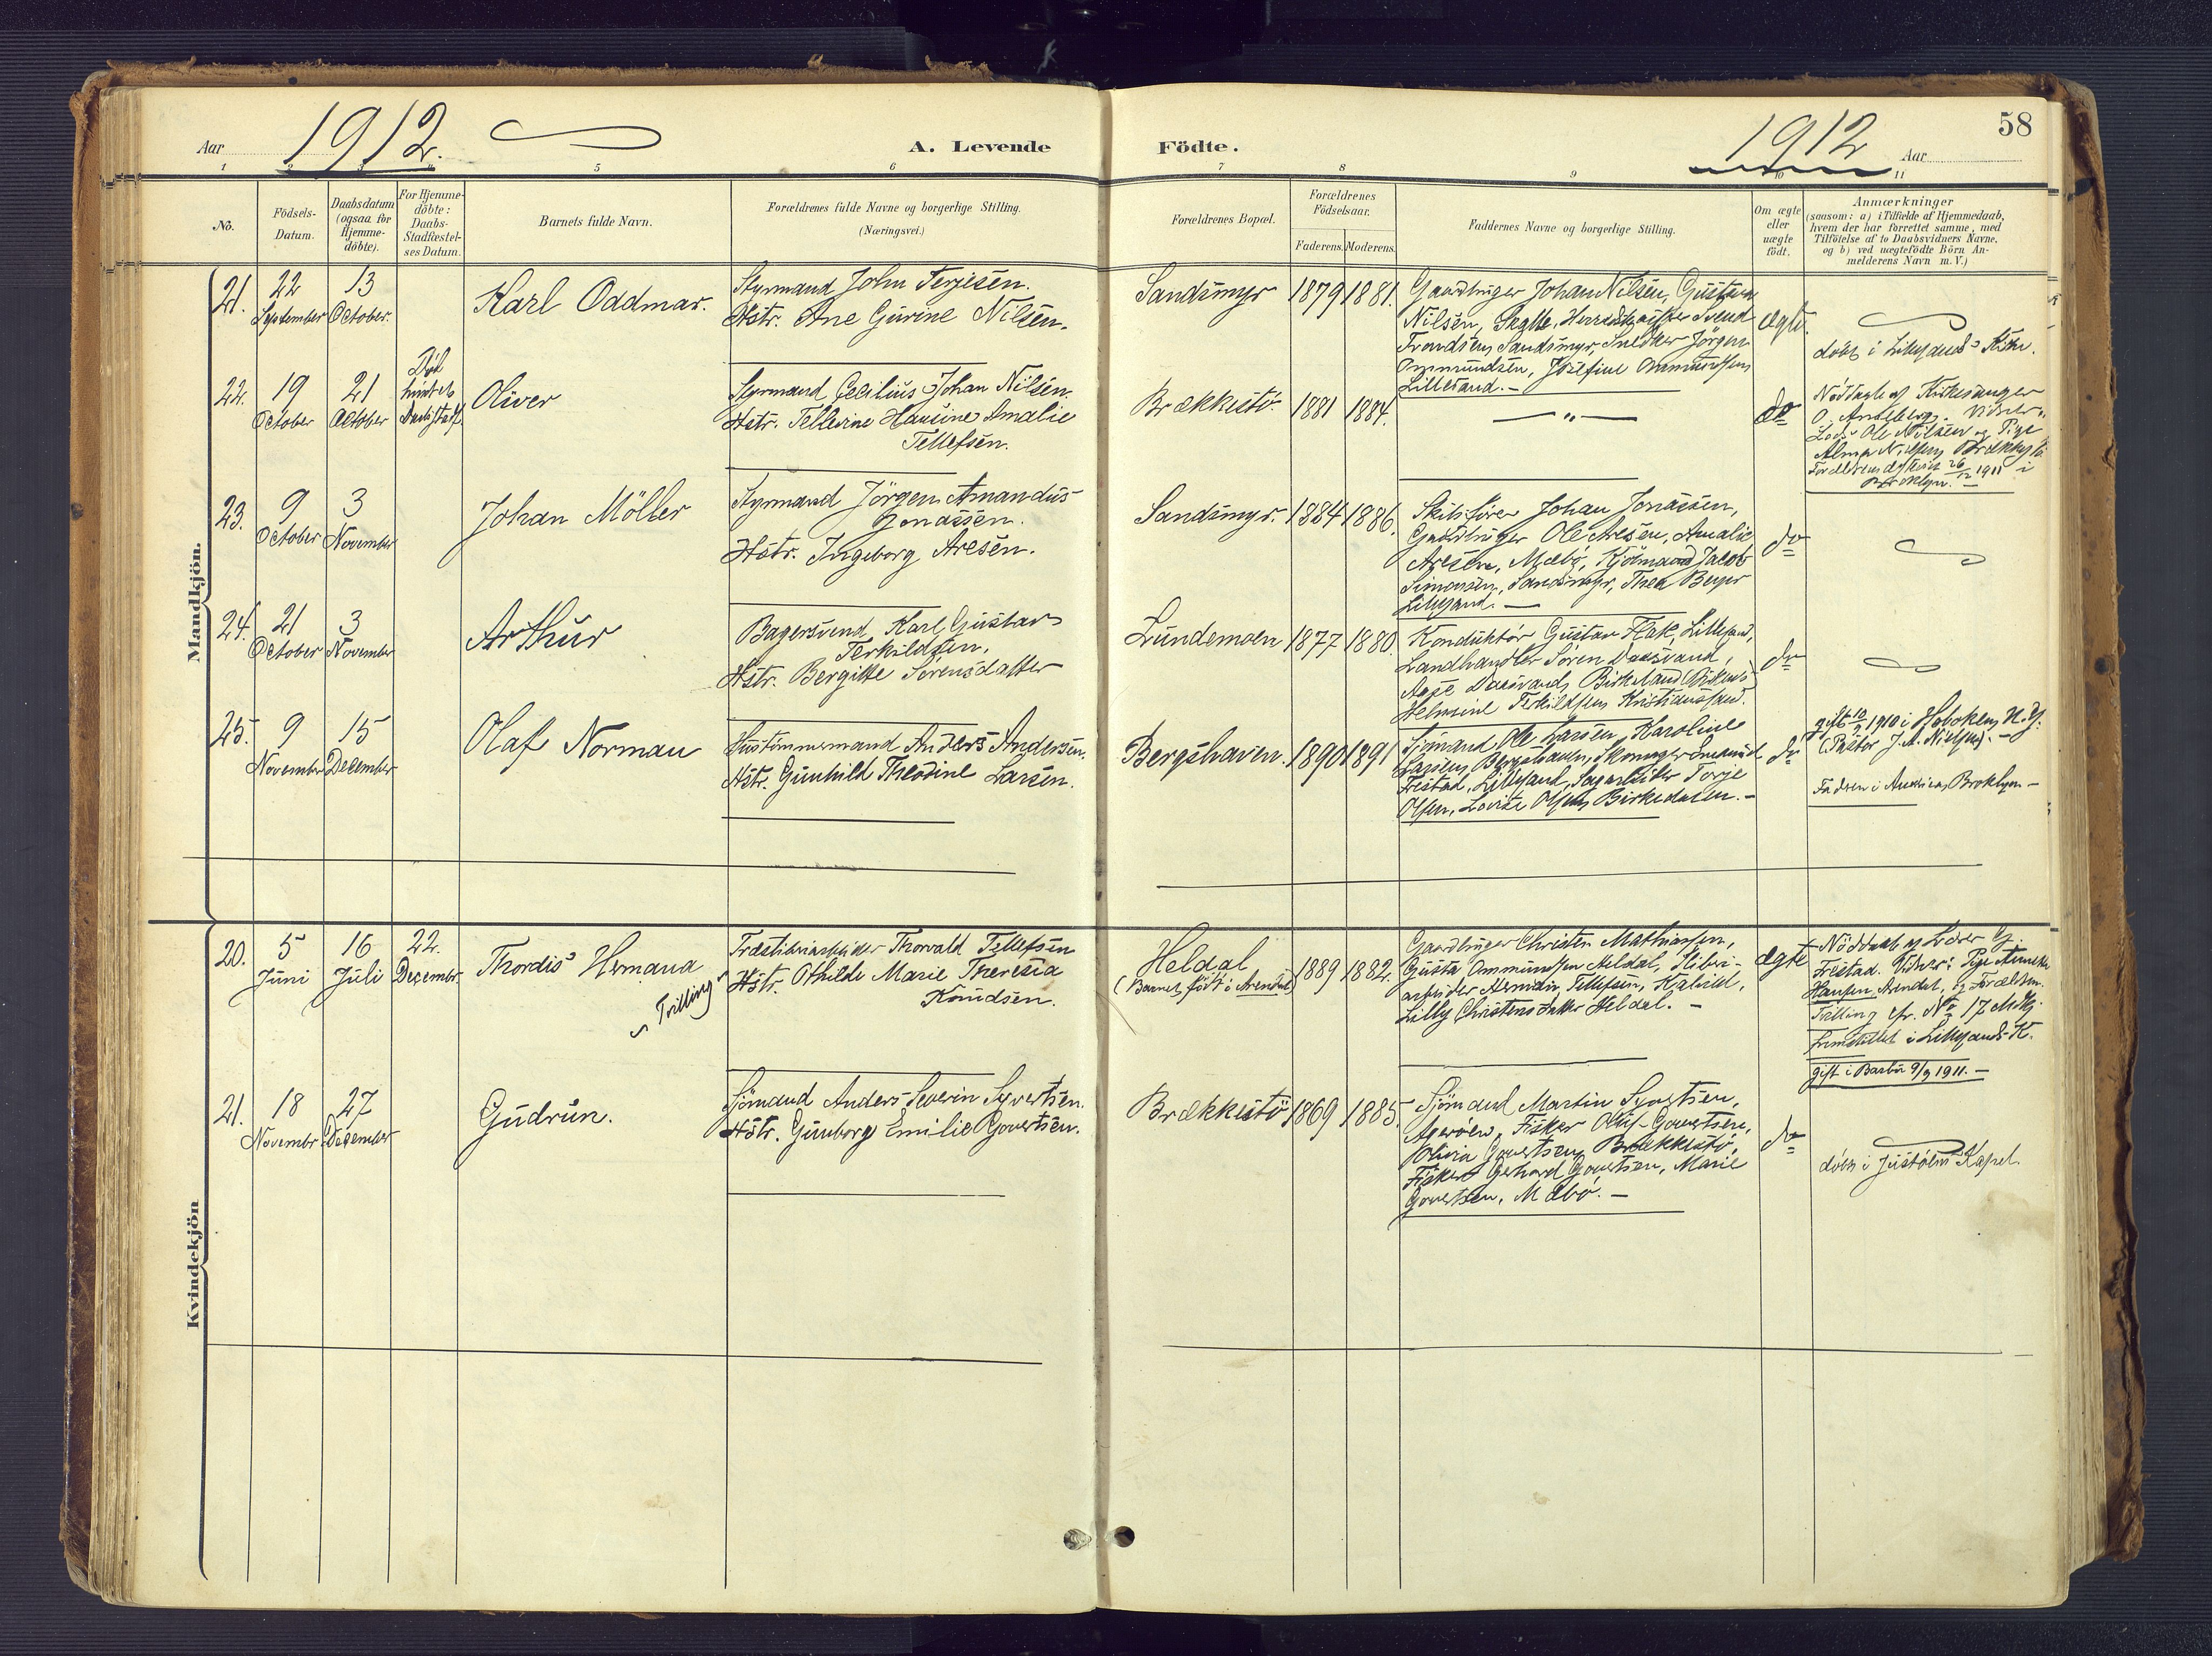 Aar 1912.
A. Levende
Födte.
1912 Aar
58
1 2 3 4 5 6 7 8 9 10 11
No.
Födsels-
Datum.
Daabsdatum
(ogsaa for
Hjemme-
döbte).
For Hjemme-
döbte:
Daabs-
Stadfæstel-
ses Datum.
Barnets fulde Navn.
Forældrenes fulde Navne og borgerlige Stilling.
(Næringsvei.)
Forældrenes Bopæl.
Forældrenes
Födselsaar.
Faderens. Moderens.
Faddernes Navne og borgerlige Stilling.
Om ægte
eller
uægte
födt.
Anmærkninger
(saasom: a) i Tilfælde af Hjemmedaab,
hvem der har forrettet samme, med
Tilföielse af to Daabsvidners Navne,
og b) ved uægtefödte Börn An-
melderens Navn m. V.)
Mandkjön.
21.
22
September
13
October.
Karl Oddmar.
Styrmand John Terjesen.
Hstr. Ane Gurine Nilsen.
Sandsmyr
1879
1881.
Gaardbruger Johan Nilsen, Gustava
Nilsen, Herredskasser Svend
Frandsen, Sandsmyr, Snedker Jörgen
Ommundsen, Josefine Ommundsen
Lillesand. —
ægte.
döbt i Lillesands Kirke.
22.
19
October
21
October
Död
hindret
Daabsstadf.
Oliver
Styrmand Cecilius Johan Nilsen.
Hstr. Tellevine Hansine Amalie
Tellefsen.
Brækkestö.
1881
1884.
— „ —
do
Nöddaab af Kirkesanger
Lods Ole Nilsen og Pige
Alma Nilsen, Brækkestö
Forældrene gift 26/12 1911 i
Broklyn. —
23.
9
October
3
November
Johan Möller
Styrmand Jörgen Amandus
Jonassen.
Hstr. Ingeborg Aresen.
Sandsmyr.
1884
1886.
Skibsförer Johan Jonassen,
Gaardbruger Ole Aresen, Amalie
Aresen, Mæbö, Kjömand Jacob
Simonsen, Sandsmyr, Thea Beyer
Lillesand. —
do
24.
21
October
3
November
Arthur
Bagersvend Karl Gustav
Terkildsen.
Hstr. Bergitte Sörensdatter
Lundemoen
1877
1880.
Konduktör Gustav Flak, Lillesand,
Landhandler Sören Daasvand,
Aase Daasvand, Birkeland,
Helmine Terkildsen Kristianssand.
do
25.
9
November
15
December
Olaf Norman
Hustömmermand Anders Andersen.
Hstr. Gunhild Theodine Larsen.
Bergshaven.
1890
1891
Sjömand Ole Larsen, Karoline
Larsen, Bergshaven, Skomager Emanuel
Frestad, Lillesand, Sagarbeider Terje
Olsen, Lovise Olsen, Birkedalen. —
do
gift 10/2 1910 i Hoboken, N. Y.
(Pastor J. A. Nielsen). —
Faderen i Amerika, Broklyn —
Kvindekjön
20.
5
Juni
16
Juli
22.
December
Thordis Hermana
„ Trilling „
Træsliberiarbeider Thorvald Tellefsen
Hstr. Othilde Marie Theresia
Knudsen.
Heldal
(Barnet födt i Arendal)
1889
1882.
Gaardbruger Christen Mathiassen,
Gusta Ommundsen Heldal, Sliberi-
arbeider Tellefsen, Kalvild,
Lilly Christensdatter Heldal. —
ægte
Nöddaab af Lærer G.
Frestad. Vidner: Pige
Hansen, Arendal, og Forældrene.
Trilling cfr. No 17 Mdkj.
fremstillet i Lillesands K.
gift i Barbu 9/9 1911. —
21.
18
Novembr.
27
December
Gudrun.
Sjömand Anders Severin Syvertsen.
Hstr. Gunborg Emilie Govertsen.
Brækkestö
1869
1885.
Sjömand Martin Syvertsen,
Ageröen, Fisker Oluf Govertsen,
Olivia Govertsen, Brækkestö,
Fisker Gerhard Govertsen, Marie
Govertsen, Mæbö. —
do
döbt i Justöens Kapel.